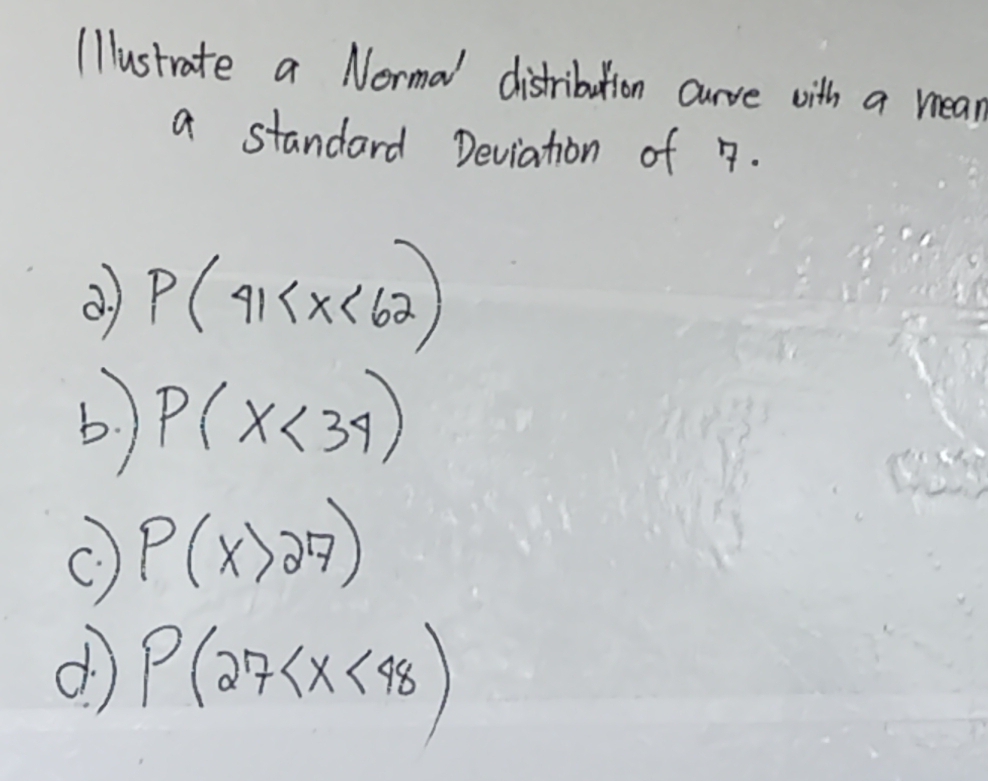 Illustrate a Normal distribution curve with a mean
a standard Deviation of 7.
a.) P(41<x<62)
b.) P(X<34)
c.) P(X>27)
d.) P(27<X<48)